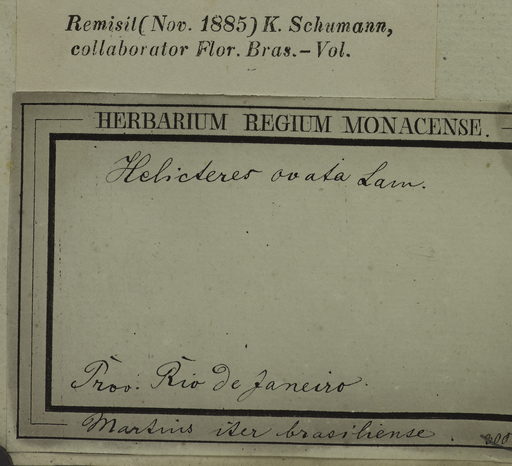 Remisit (Nov. 1885) K. Schumann,
collaborator Flor. Bras. – Vol.
HERBARIUM REGIUM MONACENSE.
Helicteres ovata Lam.
Prov. Rio de Janeiro.
Martius iter brasiliense.